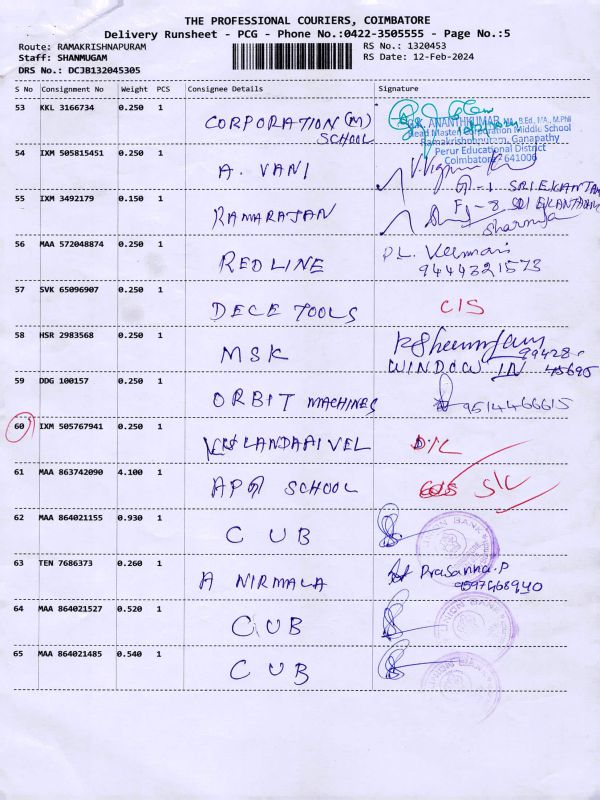 THE PROFESSIONAL COURIERS, COIMBATORE
Delivery Runsheet - PCG - Phone No.:0422-3505555 - Page No.:5
Route: RAMAKRISHNAPURAM
RS No.: 1320453
Staff: SHANMUGAM
RS Date: 12-Feb-2024
DRS No.: DCJB132045305
S No Consignment No Weight PCS Consignee Details Signature
53 KKL 3166734 0.250 1
CORPORATION (M)
SCHOOL
ANANTHKUMAR MA., B.Ed., MA., M.Phil
Head Master Corporation Middle School
Ramakrishnapuram, Ganapathy
Perur Educational District
Coimbatore 641006
54 IXM 505815451 0.250 1
A. VANI
G-1 SRI EKANTAM
55 IXM 3492179 0.150 1
RAMARAJAN
F-8 SRI EKANTAM
Sharmija
56 MAA 572048874 0.250 1
REDLINE
PL. Veerman
9444321573
57 SVK 65096907 0.250 1
DECE TOOLS C/S
58 HSR 2983568 0.250 1
MSK
99428-
WINDOW IN 45695
59 DDG 100157 0.250 1
ORBIT MACHINES 9514466615
60 IXM 505767941 0.250 1
KULANDAAIVEL D/L
61 MAA 863742090 4.100 1
APG SCHOOL S/L
62 MAA 864021155 0.930 1
CUB
UNION BANK
63 TEN 7686373 0.260 1
A NIRMALA Prasanna.P
9597468940
64 MAA 864021527 0.520 1
CUB
UNION BANK
65 MAA 864021485 0.540 1
CUB